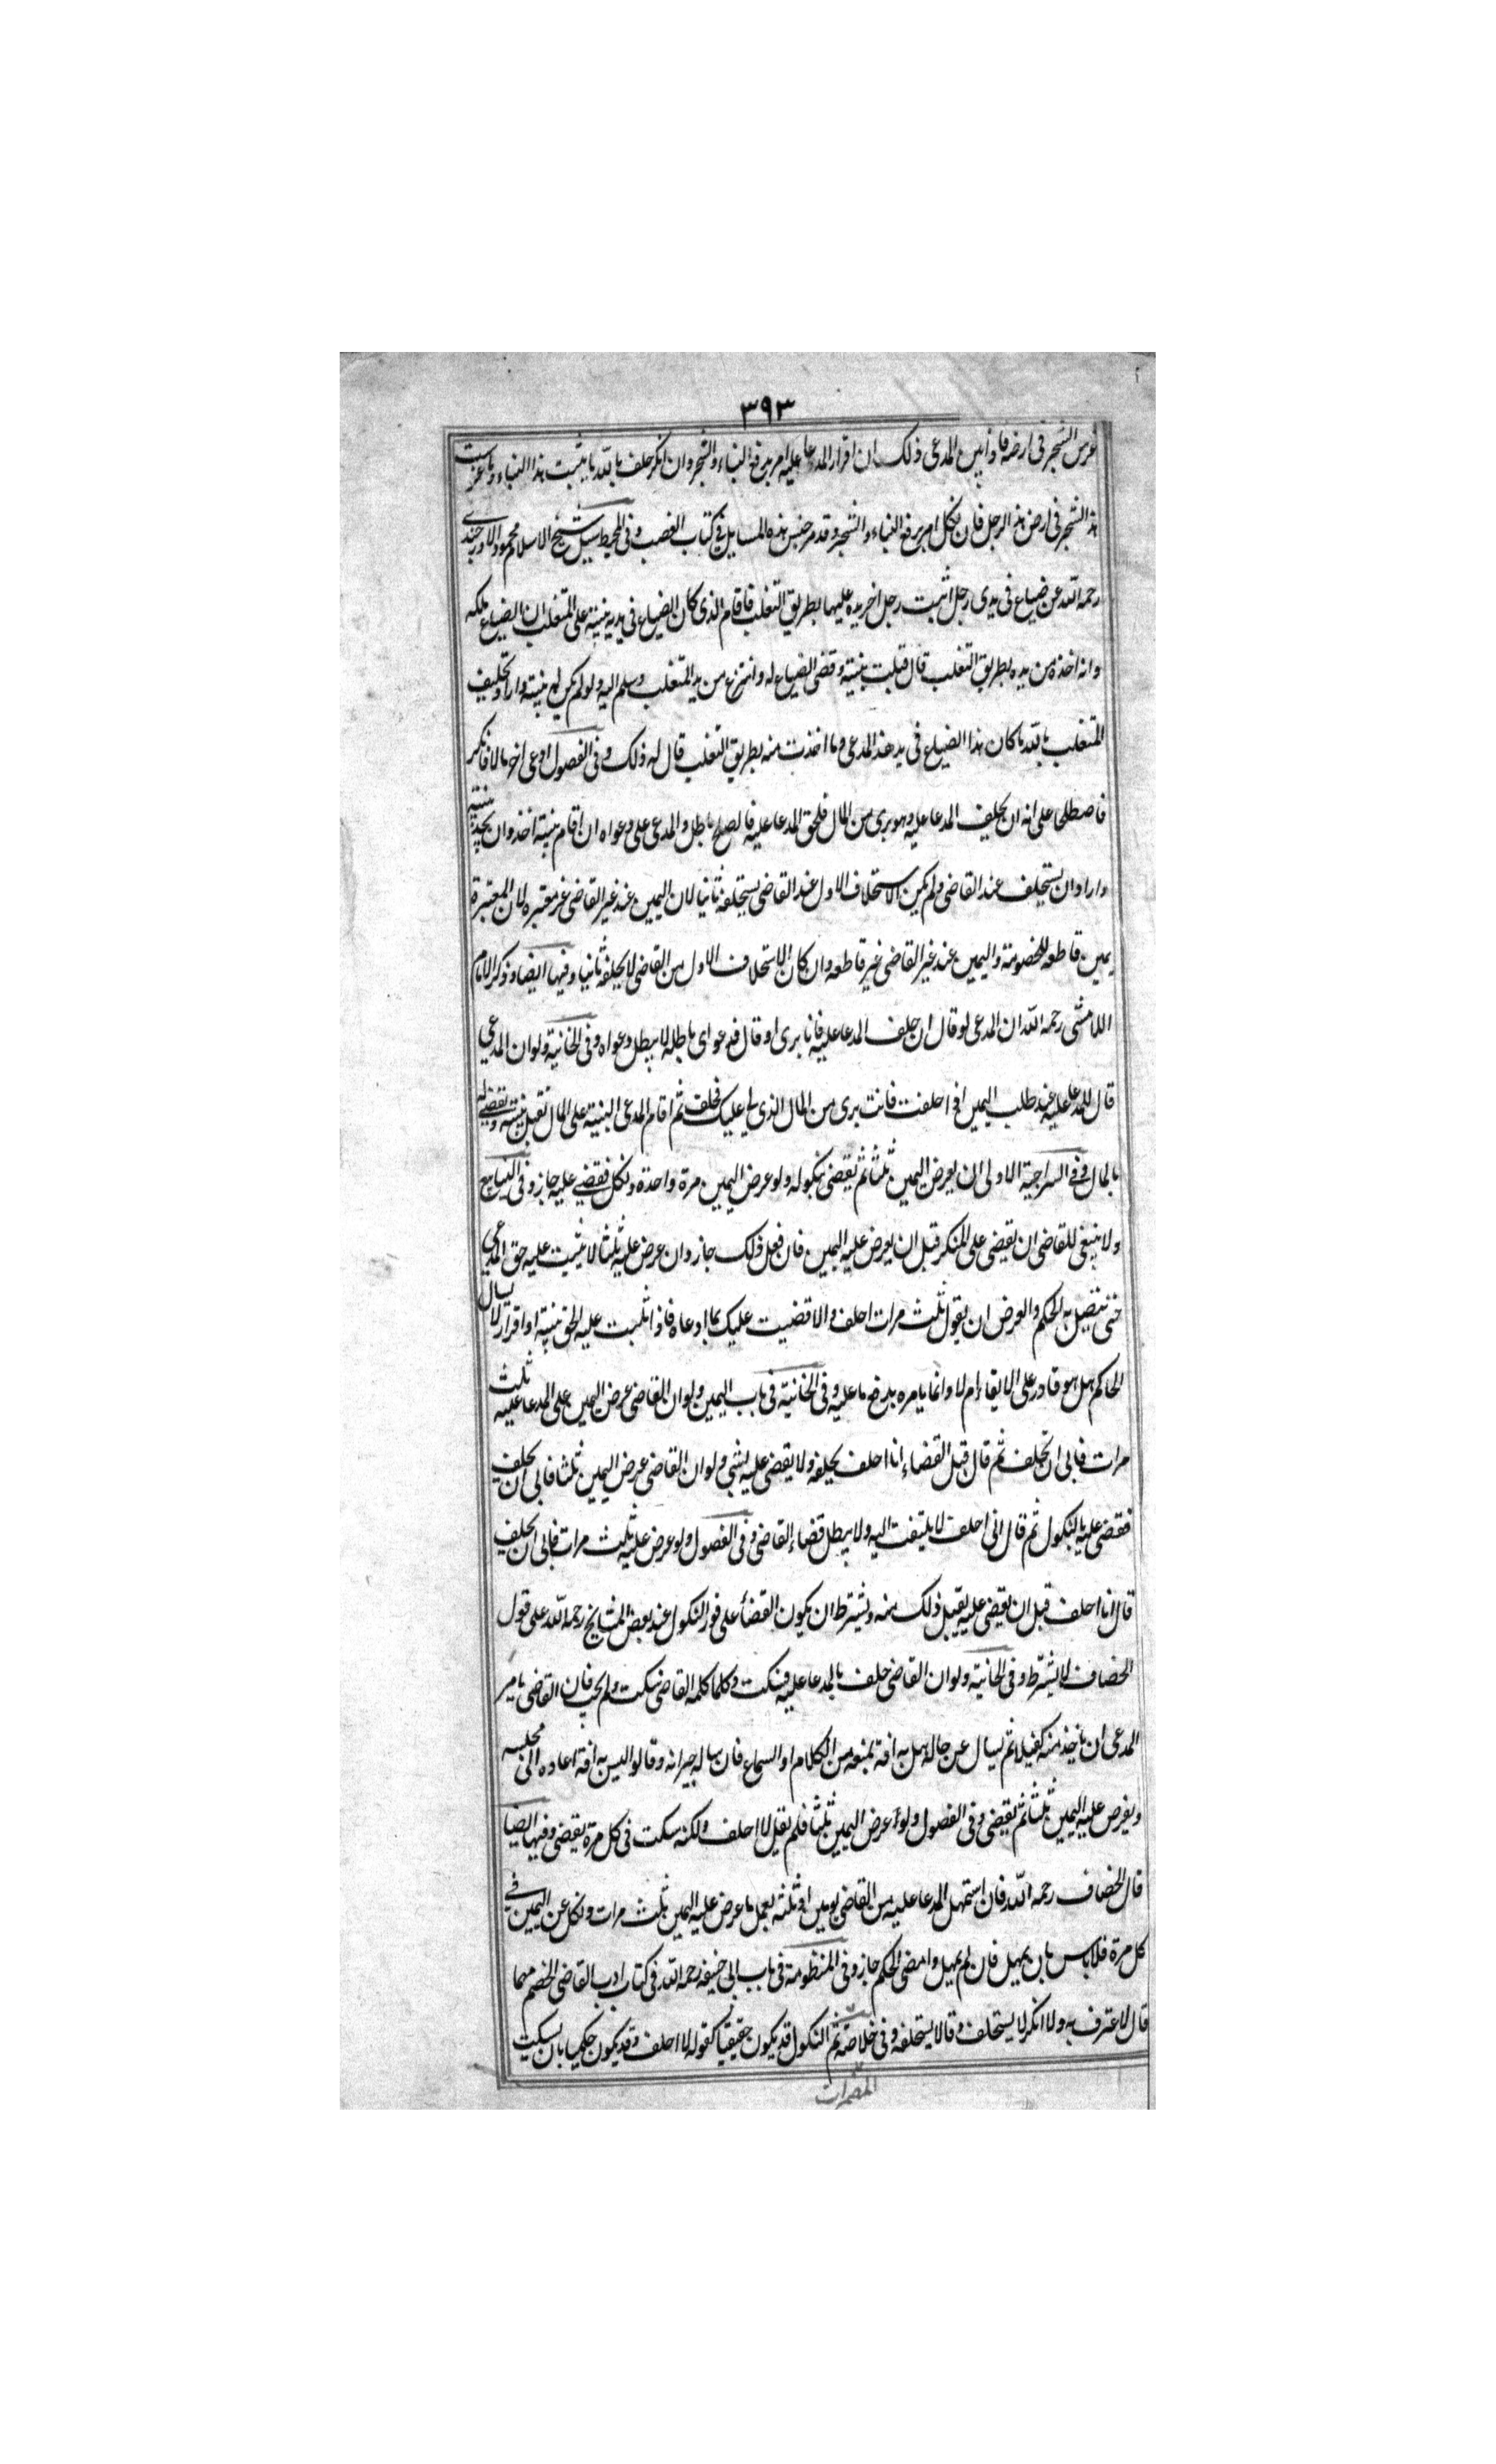 ٣٩٣
غرس الشجر فى ارضه فاذا بين المدعى ذلك ان اقرار المدعا عليه امر برفع البناء والشجر وان انكر حلف بالله ما بنيت هذا البناء وما غرست
هذا الشجر فى ارض هذا الرجل فان نكل امر برفع البناء والشجر وقد مر جنس هذه المسايل فى كتاب الغصب وفى المحيط سيل شيخ الاسلام محمود الاوزجندى
رحمه الله عن ضياع فى يدى رجل اثبت رجل اخر يده عليها بطريق التغلب فاقام الذى كان الضياع فى يديه بينة على المتغلب ان الضياع ملكه
وانه اخذه من يده بطريق التغلب قال قبلت بينته وقضى الضياع له وانتزع من يد المتغلب وسلم اليه ولو لم يكن له بينة واراد تحليف
المتغلب بالله ما كان هذا الضياع فى يد هذا المدعى وما اخذت منه بطريق التغلب قال له ذلك وفى الفصول ادعى اخر مالا فانكر
فاصطلحا على انه ان يحليف المدعا عليه وهو برى من المال فلحق المدعا عليه فالصلح باطل والمدعى على دعواه ان اقام بينة اخذ وان لم يجد بينة
واراد ان يستحلف عند القاضى ولم يكن الاستحلاف الاول عند القاضى يستحلفه ثانيا لان اليمين عند غير القاضى غير معتبرة لان المعتبرة
يمين قاطعه للخصومة واليمين عند غير القاضى غير قاطعه وان كان الاستحلاف الاول من القاضى لا يحلفه ثانيا وفيها ايضا وذكر الامام
اللامشى رحمه الله ان المدعى لو قال ان حلف المدعا عليه فانا برى او قال فدعواى باطله لا يبطل دعواه وفى الخانية ولو ان المدعى
قال للمدعا عليه عند طلب اليمين اذا حلفت فانت برى من المال الذى لى عليك فحلف ثم اقام المدعى البينة على المال تقبل بينته ويقضى له
بالمال وفى السراجية الاولى ان يعرض اليمين ثلثا ثم يقضى بنكوله ولو عرض اليمين مرة واحدة ونكل فقضى عليه جاز وفى الينابيع
ولا ينبغى للقاضى ان يقضى على المنكر قبل ان يعرض عليه اليمين فان فعل ذلك جاز وان عرض عليه ثلثا لا يثبت عليه حق المدعى
حتى يتصل به الحكم والعرض ان يقول ثلث مرات احلف والا قضيت عليك بما ادعاه فاذا ثبت عليه الحق ببينة او اقرار لا يسال
الحاكم هل هو قادر على الايفاء ام لا وانما يامره بدفع ما عليه وفى الخانية فى باب اليمين ولو ان القاضى عرض اليمين على المدعا عليه ثلث
مرات فابى ان يحلف ثم قال قبل القضاء انا احلف يحلفه ولا يقضى عليه بشى ولو ان القاضى عرض اليمين ثلثا فابى ان يحلف
فقضى عليه بالنكول ثم قال انى احلف لا يلتفت اليه ولا يبطل قضاء القاضى وفى الفصول ولو عرض عليه ثلث مرات فابى ان يحلف
قال انا احلف قبل ان يقضى عليه يقبل ذلك منه ويشترط ان يكون القضا على فور النكول عند بعض المشايخ رحمه الله على قول
الخصاف لا يشترط وفى الخانية ولو ان القاضى حلف بالمدعا عليه فسكت وكلما كلمه القاضى سكت ولم يجب فان القاضى يامر
المدعى ان ياخذ منه كفيلا ثم يسال عن حاله هل به افة يمنعه من الكلام او السماع فان سال جيرانه وقالوا ليس به افة اعاده الى مجلسه
ويعرض عليه اليمين ثلثا ثم يقضى وفى الفصول ولو عرض اليمين ثلثا فلم يقل لا احلف ولكنه سكت فى كل مرة يقضى وفيها ايضا
قال الخصاف رحمه الله فان استمهل المدعا عليه من القاضى يومين او ثلثه بعد ما عرض عليه اليمين ثلث مرات ونكل عن اليمين فى
كل مرة فلا باس بان يمهل فان لم يمهل وامضى الحكم جاز وفى المنظومة فى باب ابى حنيفه رحمه الله فى كتاب ادب القاضى الخصم مهما
قال لا اعترف به ولا انكر لا يستحلف وقالا يستحلفه وفى خلاصة ثم النكول قد يكون حقيقيا كقوله لا احلف وقد يكون حكميا بان يسكت
المضمرات